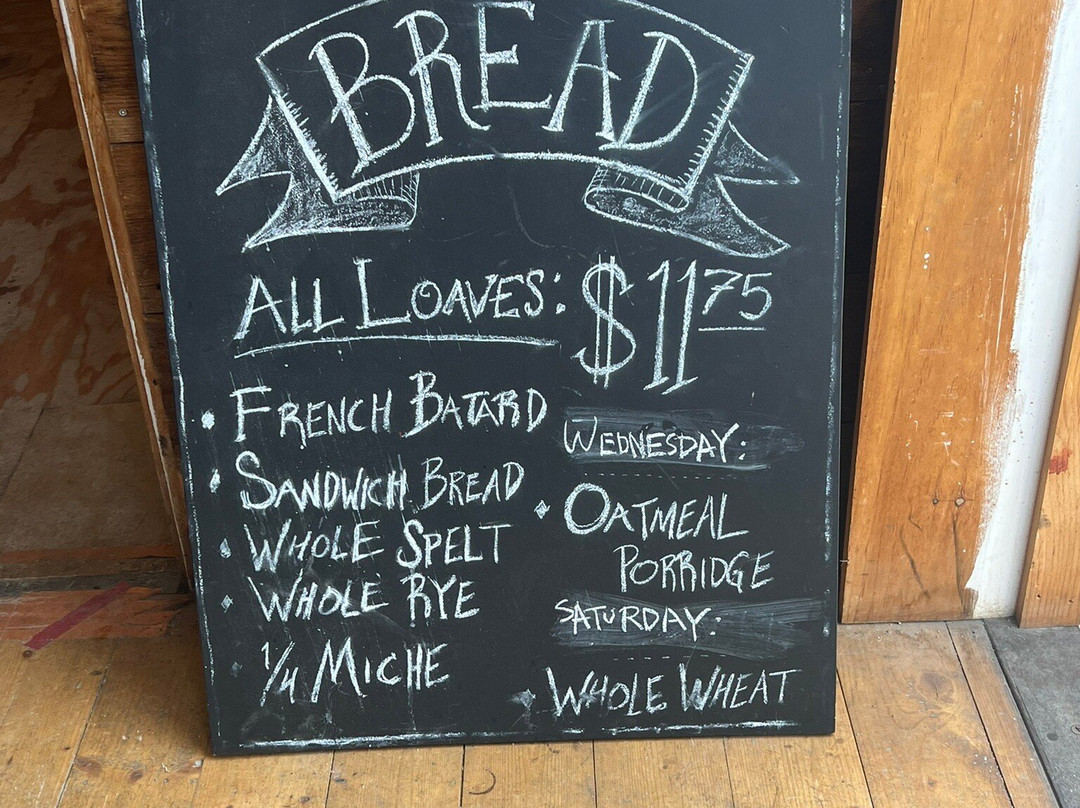 BREAD
ALL LOAVES: $11 75
FRENCH BATARD
SANDWICH BREAD
WHOLE SPELT
WHOLE RYE
1/4 MICHE
WEDNESDAY:
OATMEAL
PORRIDGE
SATURDAY:
WHOLE WHEAT